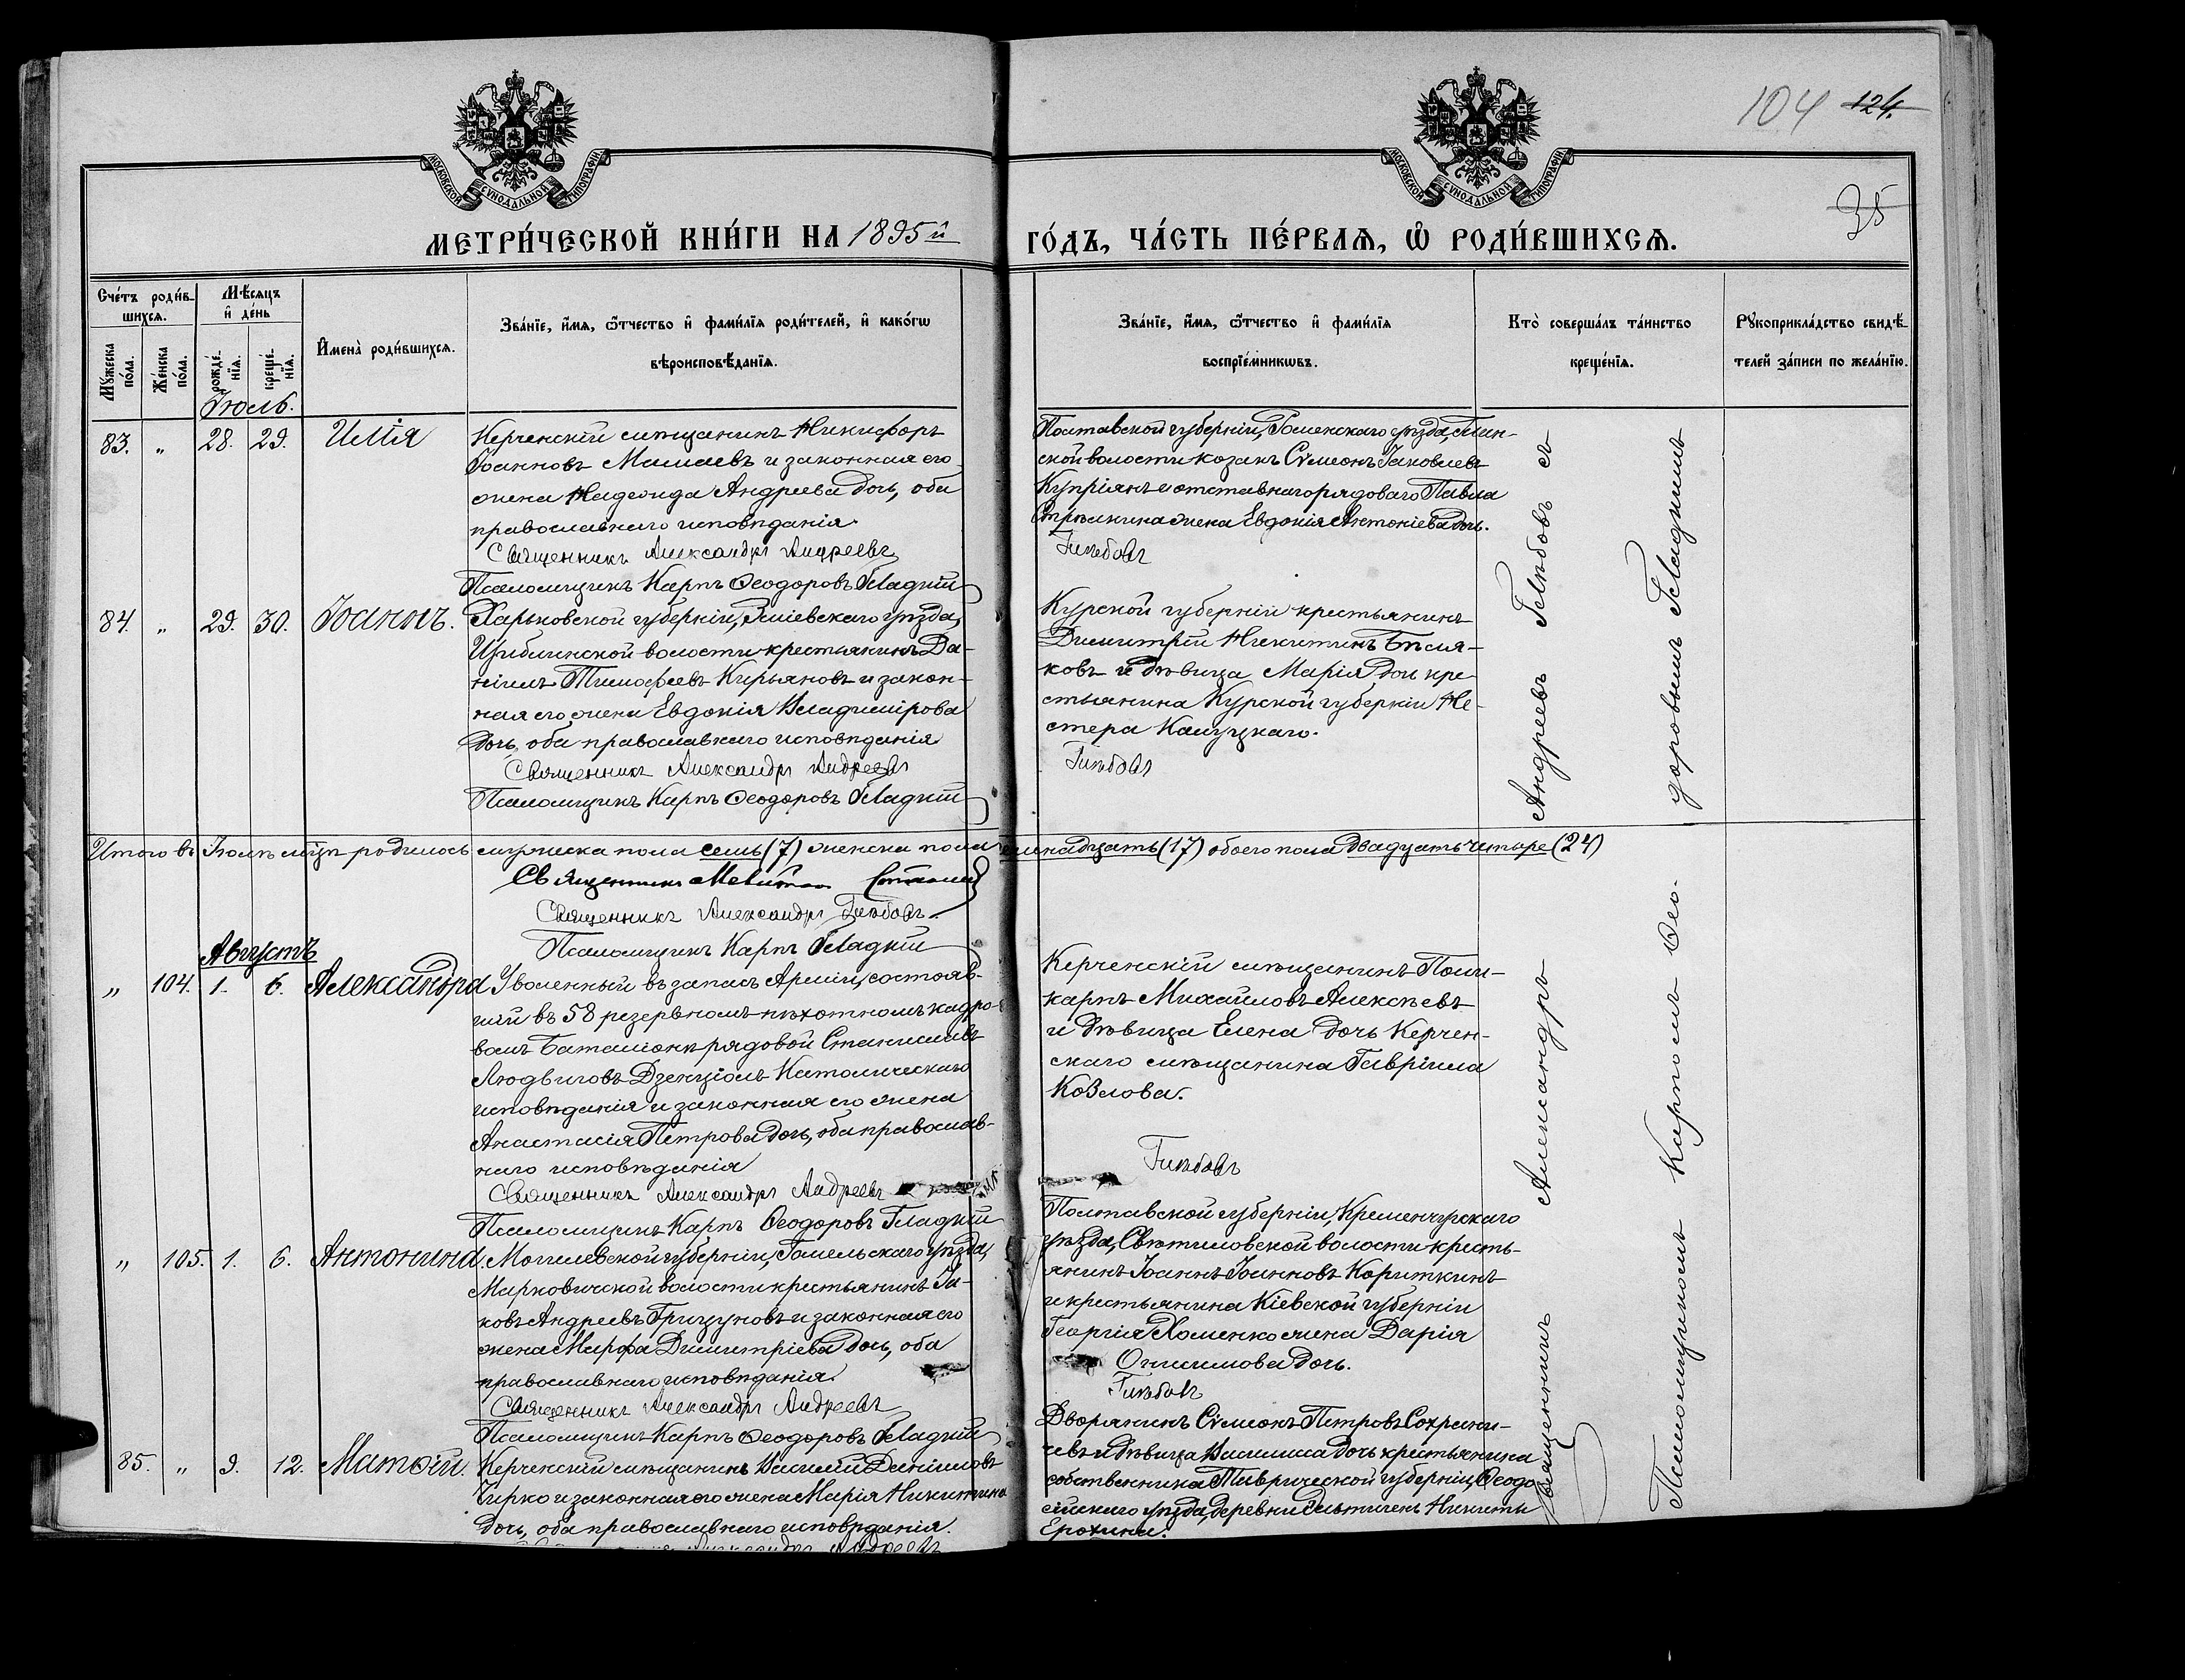 104 124.
35
МОСКОВСКОЙ СѴНОДАЛЬНОЙ ТИПОГРАФІИ
МОСКОВСКОЙ СѴНОДАЛЬНОЙ ТИПОГРАФІИ
МЕТРИ́ЧЕСКОЙ КНИ́ГИ НА 1895й
ГО́ДЪ, ЧА́СТЬ ПЕ́РВАѦ, Ѽ РОДИ́ВШИХСѦ.
Сче́тъ роди́в-
шихсѧ.
Мꙋ́жеска по́ла.
Же́нска по́ла.
Мѣ́сѧцъ
и҆ де́нь
рожде́-
нїѧ.
креще́-
нїѧ.
И҆мена̀ роди́вшихсѧ.
Зва́нїе, и҆́мѧ, ѻ҆́тчество и҆ фами́лїѧ роди́телей, и҆ како́гѡ
вѣроисповѣ́данїѧ.
Зва́нїе, и҆́мѧ, ѻ҆́тчество и҆ фами́лїѧ
воспрїе́мникѡвъ.
Кто̀ соверша́лъ та́инство
креще́нїѧ.
Рꙋкоприкла́дство свидѣ́-
телей за́писи по жела́нїю.
Іюль.
83. „ 28. 29. Илія
Керченскій мѣщанинъ Никифоръ
Іоанновъ Мамаевъ и законная его
жена Надежда Андреева дочь, оба
православнаго исповѣданія.
Священникъ Александръ Андреевъ
Псаломщикъ Карпъ Ѳеодоровъ Гладкій
Полтавской губерніи, Роменскаго уѣзда,
ской волости козакъ Сѵмеонъ Іаковлевъ
Купріянъ и отставнаго рядоваго Павла
Стрѣлкина жена Евдокія Антоніева дочь.
Глѣбовъ
84. „ 29. 30. Іоаннъ.
Харьковской губерніи, Зміевскаго уѣзда,
волости крестьянинъ Да-
ніилъ Тимофеевъ Кирьяновъ и закон-
ная его жена Евдокія Владимірова
дочь, оба православнаго исповѣданія
Священникъ Александръ Андреевъ
Псаломщикъ Карпъ Ѳеодоровъ Гладкій
Курской губерніи крестьянинъ
Димитрій Никитинъ
ковъ и дѣвица Марія, дочь кре-
стьянина Курской губерніи Не-
стера Калуцкаго.
Глѣбовъ
Итого въ Іюлѣ мцѣ родилось мужеска пола семь (7) женска пола семнадцать (17) обоего пола двадцать четыре (24)
Священникъ
Священникъ Александръ Глѣбовъ.
Псаломщикъ Карпъ Гладкій
Августъ
„ 104. 1. 6. Александра
Уволенный въ запасъ Арміи, состояв-
шій въ 58 резервномъ пѣхотномъ кадро-
вомъ баталіонѣ рядовой Станиславъ
Людвиговъ Дзекціолъ Католическаго
исповѣданія и законная его жена
Анастасія Петрова дочь, оба православ-
наго исповѣданія
Священникъ Александръ Андреевъ
Псаломщикъ Карпъ Ѳеодоровъ Гладкій
Керченскій мѣщанинъ Поли-
карпъ Михайловъ Алексѣевъ
и дѣвица Елена дочь Керчен-
скаго мѣщанина Гавріила
Козлова.
Глѣбовъ
„ 105. 1. 6. Антонина
Могилевской губерніи, Гомельскаго уѣзда,
Марковичской волости крестьянинъ Іа-
ковъ Андреевъ Григуновъ и законная его
жена Марфа Димитріева дочь, оба
православнаго исповѣданія.
Священникъ Александръ Андреевъ
Псаломщикъ Карпъ Ѳеодоровъ Гладкій
Полтавской губерніи, Кременчугскаго
уѣзда, волости кресть-
янинъ Іоаннъ Іоанновъ Кориткинъ
и крестьянина Кіевской губерніи
Георгія Хоменко жена Дарія
Онисимова дочь.
Глѣбовъ
85. „ 9. 12. Матѳій.
Керченскій мѣщанинъ Василій Даніиловъ
Чирко и законная его жена Марія Никитина
дочь, оба православнаго исповѣданія.
Александръ Андреевъ
Дворянинъ Сѵмеонъ Петровъ
и дѣвица Василиса дочь крестьянина
собственника Таврической губерніи, Ѳеодо-
сійскаго уѣзда, деревни Никиты
Ерохина.
Священникъ Александръ Андреевъ Глѣбовъ съ
Псаломщикомъ Карпомъ Ѳео-
доровымъ Гладкимъ